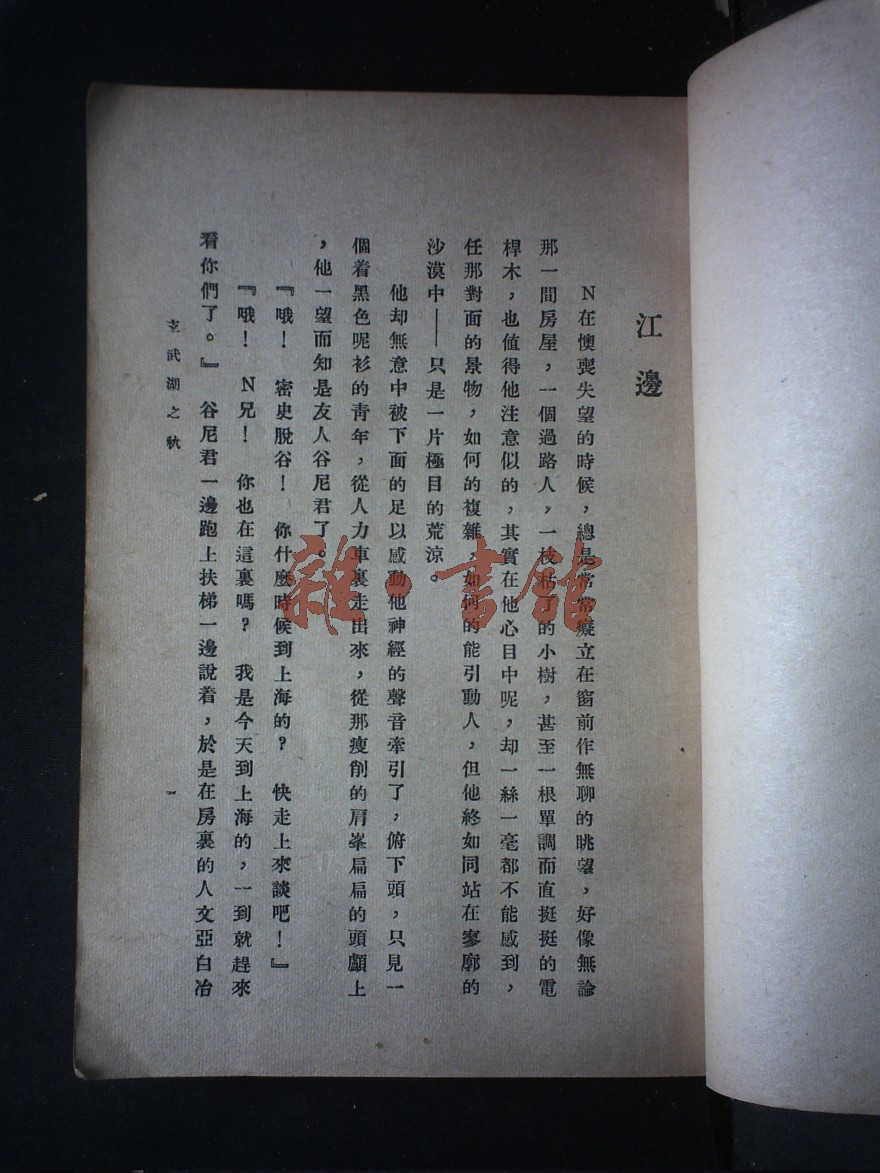 江邊
N在懊喪失望的時候，總是常常癡立在窗前作無聊的眺望，好像無論
那一間房屋，一個過路人，一枝枯了的小樹，甚至一根單調而直挺挺的電
桿木，也值得他注意似的，其實在他心目中呢，却一絲一毫都不能感到，
任那對面的景物，如何的複雜，如何的能引動人，但他終如同站在寥廓的
沙漠中——只是一片極目的荒涼。
他却無意中被下面的足以感動他神經的聲音牽引了，俯下頭，只見一
個着黑色呢衫的青年，從人力車裏走出來，從那瘦削的肩峯扁扁的頭顱上
，他一望而知是友人谷尼君了。
『哦！　密史脫谷！　你什麼時候到上海的？　快走上來談吧！』
『哦！　N兄！　你也在這裏嗎？　我是今天到上海的，一到就趕來
看你們了。』　谷尼君一邊跑上扶梯一邊說着，於是在房裏的人文亞白冶
玄武湖之秋
一
雜·書館